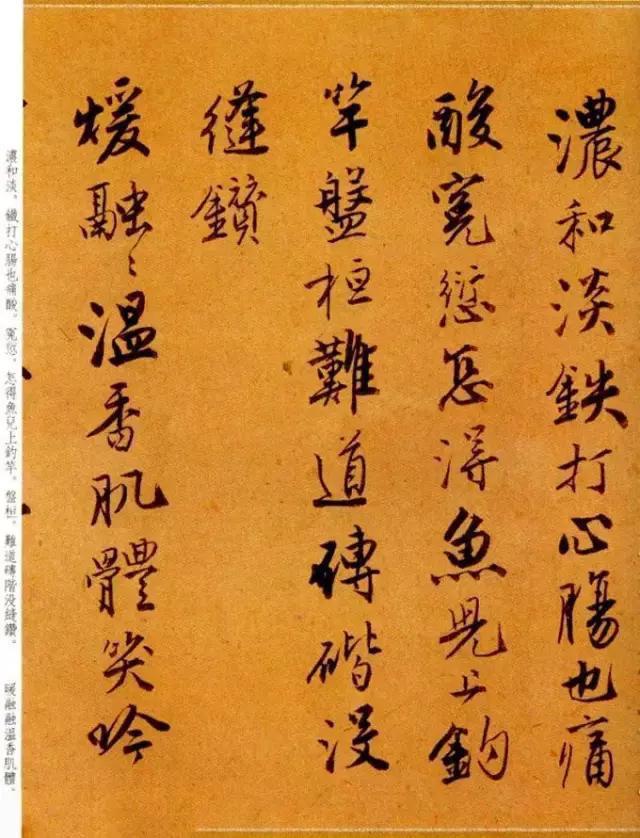 濃和淡鉄打心腸也痛
酸寃愆怎得魚兒上釣
竿盤桓難道磚磎没
縫鑽
煖融〻溫香肌體笑吟
濃和淡。鐵打心腸也痛酸。冤愆。怎得魚兒上釣竿。盤桓。難道磚階没縫鑽。
暖融融溫香肌體。